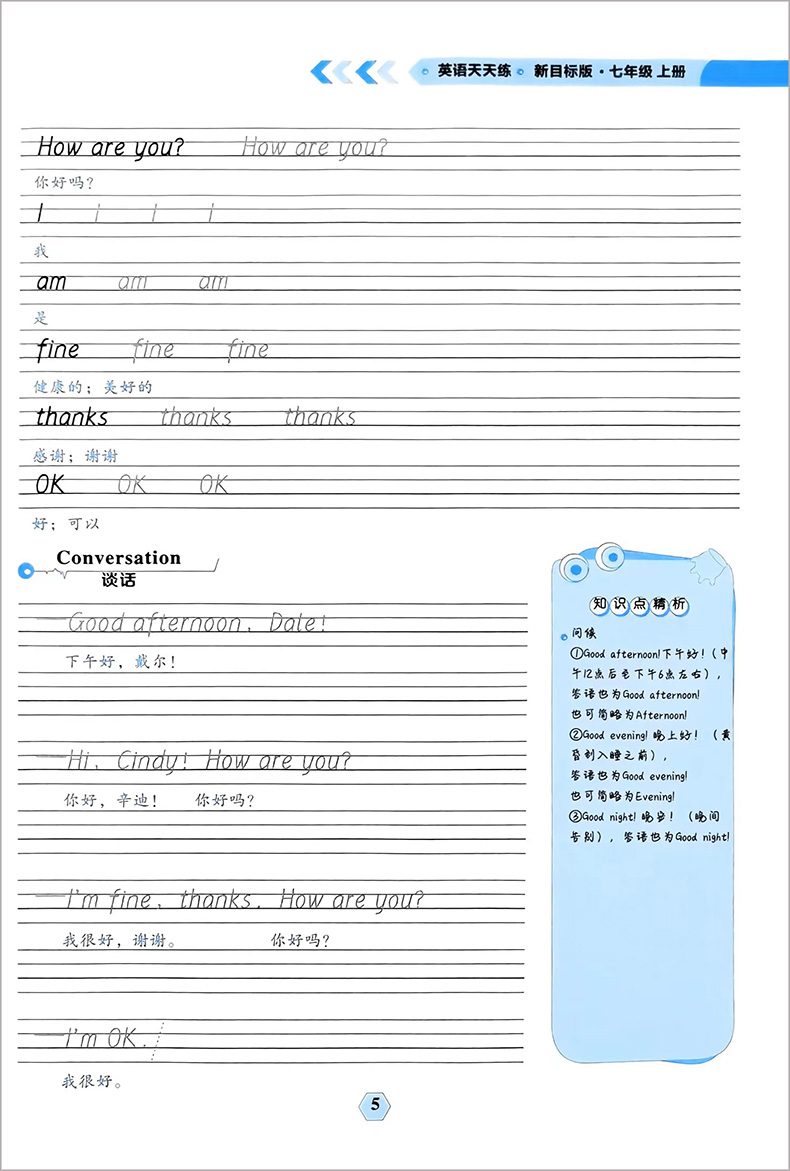 英语天天练 新目标版·七年级 上册
How are you? How are you?
你好吗？
I i i i
我
am am am
是
fine fine fine
健康的；美好的
thanks thanks thanks
感谢；谢谢
OK OK OK
好；可以
Conversation
谈话
—Good afternoon, Dale!
下午好，戴尔！
—Hi, Cindy! How are you?
你好，辛迪！ 你好吗？
—I'm fine, thanks. How are you?
我很好，谢谢。 你好吗？
—I'm OK.
我很好。
知识点精析
问候
①Good afternoon!下午好！（中
午12点后至下午6点左右），
答语也为Good afternoon!
也可简略为Afternoon!
②Good evening! 晚上好！（黄
昏到入睡之前），
答语也为Good evening!
也可简略为Evening!
③Good night! 晚安！（晚间
告别），答语也为Good night!
5